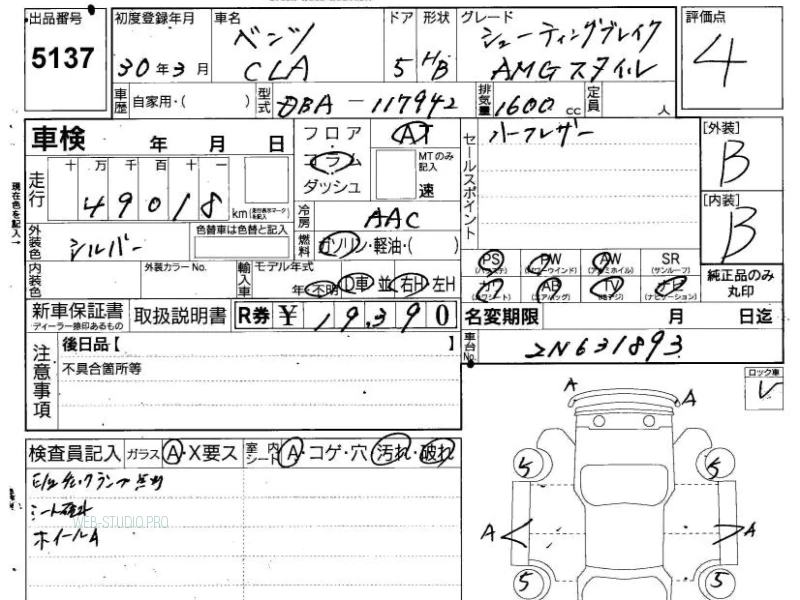 出品番号
5137
初度登録年月
30年3月
車名
ベンツ
CLA
ドア
5
形状
HB
グレード
シューティングブレイク
AMGスタイル
評価点
4
車歴
自家用・( )
型式
DBA-117942
排気量
1600cc
定員
人
車検 年 月 日
フロア
コラム
ダッシュ
AT
MTのみ記入
速
セールスポイント
ハーフレザー
[外装]
B
[内装]
B
現在色を記入→
走行
十 万 千 百 十 一
49018
km
冷房
AAC
外装色
シルバー
色替車は色替と記入
燃料
ガソリン・軽油・( )
内装色
外装カラーNo.
輸入車
モデル年式
年 不明
D車 並 右H 左H
PS
(パワステ)
PW
(パワーウインド)
AW
(アルミホイル)
SR
(サンルーフ)
カワ
(カワシート)
AB
(エアバッグ)
TV
(地デジ)
ナビ
(ナビゲーション)
純正品のみ
丸印
新車保証書
ディーラー捺印あるもの
取扱説明書
R券
¥19,390
名変期限 月 日迄
車台No.
2N631893
注意事項
後日品【 】
不具合箇所等
ロック車
レ
検査員記入
ガラス A・X要ス
室内シート A・コゲ・穴・汚れ・破れ
シート
WEB-STUDIO.PRO
ホイールA
A
A
5
5
A
A
5
5